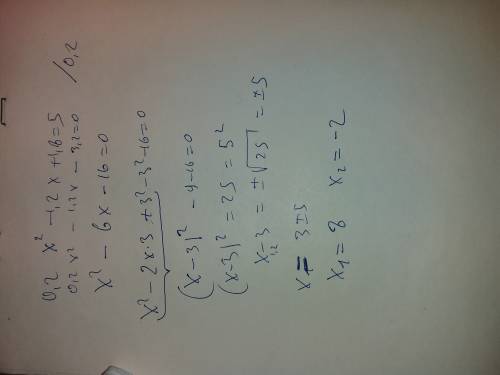 0,2 x² -1,2x +1,8=5
0,2x² - 1,2x - 3,2=0 /0,2
x² - 6x - 16=0
x² - 2x·3 + 3² - 3² - 16=0
(x-3)² - 9 - 16=0
(x-3)² = 25 = 5²
x₁,₂ - 3 = ±√25 = ±5
x = 3±5
x₁ = 8 x₂ = -2